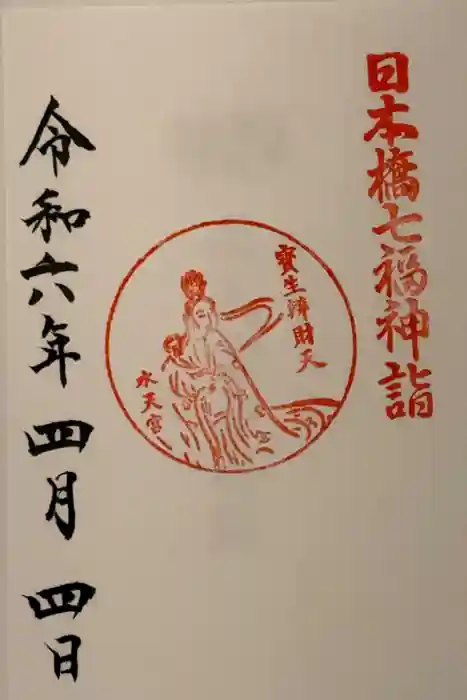 日本橋七福神詣
寳生辨財天
水天宮
令和六年 四月 四日